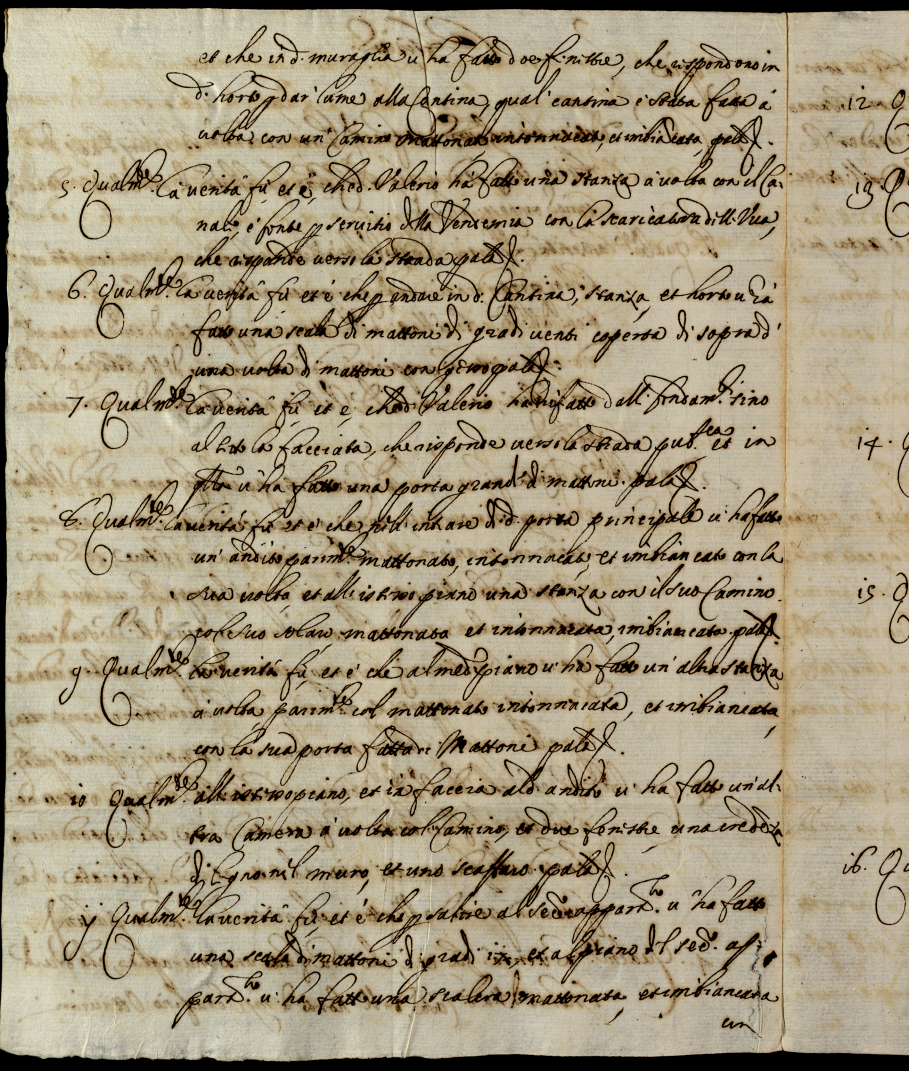 et che in d. muraglia u' ha fatto doe finistre, che rispondono in
d. horto p dar lume alla Cantina, qual' cantina è stata fatta à
volta, con un Camino mattonato intonnicato, et imbiancato, pala
5. Qualm.te la verità fù, et è, che d. Valerio ha fatto una stanza à volta con il Ca-
nale, è fonte p servitio della Vensemia con la scaricatora dell' Uva,
che risponde verso la strada pala
6. Qualm.te la verità fù et è che p andare in d. Cantina, stanza, et horto u' hà
fatto una scala di mattoni di gradi venti coperta di sopra d'
una volta di mattoni con pala
7. Qualm.te la verità fù, et è, che d. Valerio ha rifatto dalli fondam.ti sino
al la facciata, che risponde verso la strada pub.ca et in
u' ha fatto una porta grande di mattoni pala
8. Qualm.te la verità fù et è che nell' intrare di d. porta principale u' ha fatto
un' andito parim.te mattonato, intonnicato, et imbiancato con la
sua volta, et all' istesso piano una stanza con il suo Camino
col suo solaro, mattonata et intonnicata, imbiancata pala
9. Qualm.te la verità fù, et è che al med.o piano u' ha fatto un' altra stanza
à volta, parim.te col mattonato intonnicata, et imbiancata,
con la sua porta fatta di Mattoni pala
10 Qualm.te all' istesso piano, et in faccia al d. andito u' ha fatto un' al-
tra Camera à volta col Camino, et due finistre, una credenza
di legno nel muro, et uno scaffaro pala
11 Qualm.te la verità fù, et è che p salire al sec.o appart.to u' ha fatto
una scala di mattoni di gradi et al piano del sec.o ap-
part.to u' ha fatto una mattonata, et imbiancata
un
12
13
14.
15.
16.